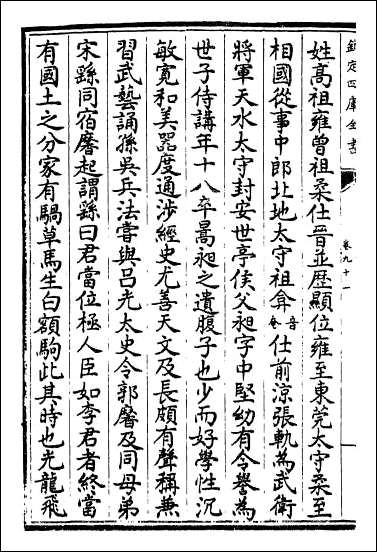 欽定四庫全書
卷九十一
姓髙祖雍曽祖柔仕晋並歴顯位雍至東莞太守柔至
相國從事中郎北地太守祖弇音奄仕前涼張軌為武衛
將軍天水太守封安世亭侯父昶字中堅幼有令譽為
世子侍講年十八卒暠昶之遺腹子也少而好學性沉
敏寛和美器度通涉經史尤善天文及長頗有聲稱兼
習武藝誦孫吳兵法嘗與吕光太史令郭黁及同母弟
宋繇同宿黁起謂繇曰君當位極人臣如李君者終當
有國土之分家有騧草馬生白額駒此其時也光龍飛